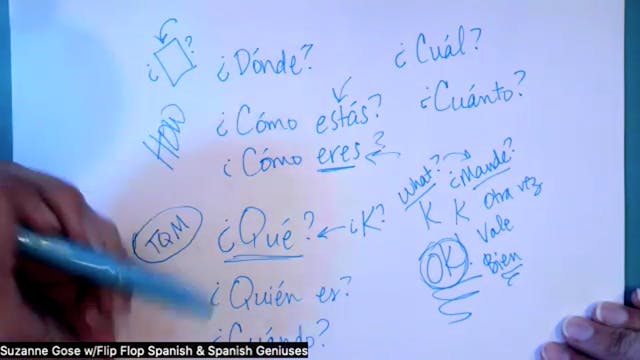 ¿ ?
¿Dónde?
¿Cuál?
HOW
¿Cómo estás?
¿Cuánto?
¿Cómo eres?
what?
¿Mande?
K K
Otra vez
Vale
OK
Bien
TQM
¿Qué?
¿K?
¿Quién es?
¿Cuándo?
Suzanne Gose w/Flip Flop Spanish & Spanish Geniuses